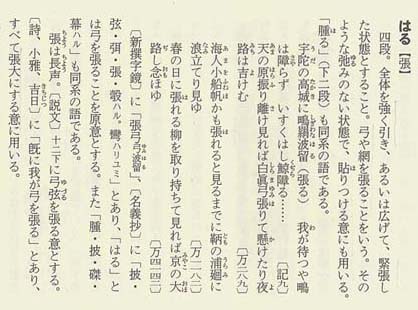 はる【張】
四段。全体を強く引き、あるいは広げて、緊張し
た状態とすること。弓や網を張ることをいう。その
ような弛みのない状態で、貼りつける意にも用いる。
「腫る」(下二段)も同系の語である。
宇陀の高城に鴫羂波留(張る) 我が待つや鴫
は障らず いすくはし鯨障る…… 〔記九〕
天の原振り離け見れば白眞弓張りて懸けたり夜
路は吉けむ 〔万二八九〕
海人小船帆かも張れると見るまでに鞆の浦廻に
浪立てり見ゆ 〔万一一八二〕
春の日に張れる柳を取り持ちて見れば京の大
路し念ほゆ 〔万四一四二〕
〔新撰字鏡〕に「張弓弓波留」、〔名義抄〕に「披・
弦・弭・張・彀ハル。彎ハリユミ」とあり、「はる」と
は弓を張ることを原意とする。また「腫・披・磔・
幕ハル」も同系の語である。
張は長声。〔説文〕十二下に「弓弦を張る意とする。
〔詩、小雅、吉日〕に「既に我が弓を張る」とあり、
すべて張大にする意に用いる。